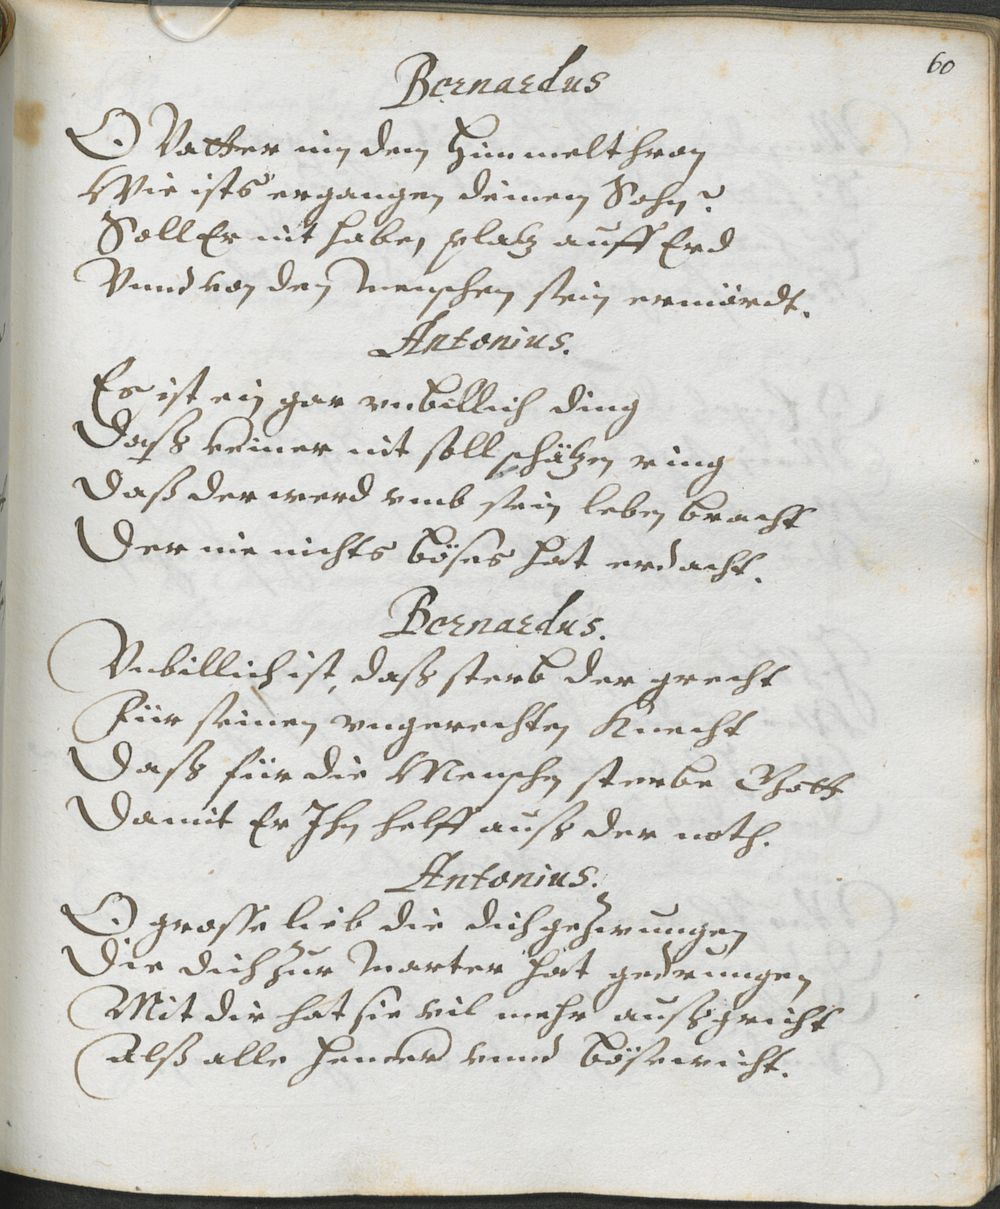 60
Bernardus
O Vatter inn dem Himmelthron
Wie ists ergangen deinem Sohn?
Soll Er nit haben platz auff Erd
Vnnd von den Menschen sein ermördt.
Antonius.
Es ist ein gar vnbillich ding
Daß keiner nit soll schätzen ring
Daß der werd vmb sein leben bracht
Der nie nichts böses hat erdacht.
Bernardus.
Vnbillich ist, daß sterb der grecht
Für seinen vngerechten Knecht
Daß für die Menschen sterbe Gott
Damit Er Ihn helff auß der noth.
Antonius.
O grosse lieb die dich gezwungen
Die dich zur Marter hat gedrungen
Mit dir hat sie vil mehr außgricht
Alß alle Hencker vnnd bößwicht.